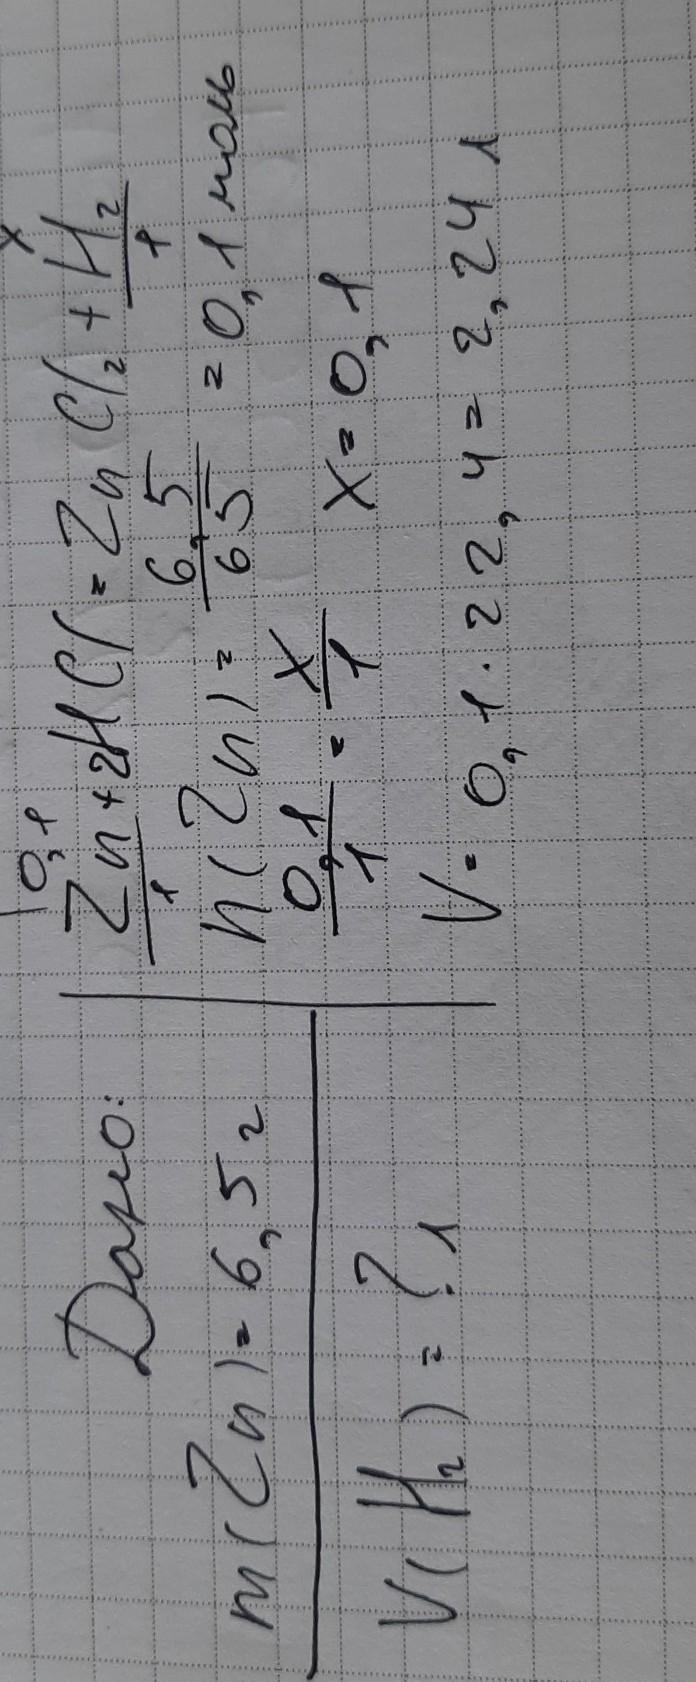 Дано:
m(Zn)=6,5г
V(H₂)=? л
0,1 x
Zn+2HCl=ZnCl₂+H₂
1 1
n(Zn)=6,5/65=0,1 моль
0,1/1=x/1 x=0,1
V=0,1·22,4=2,24 л